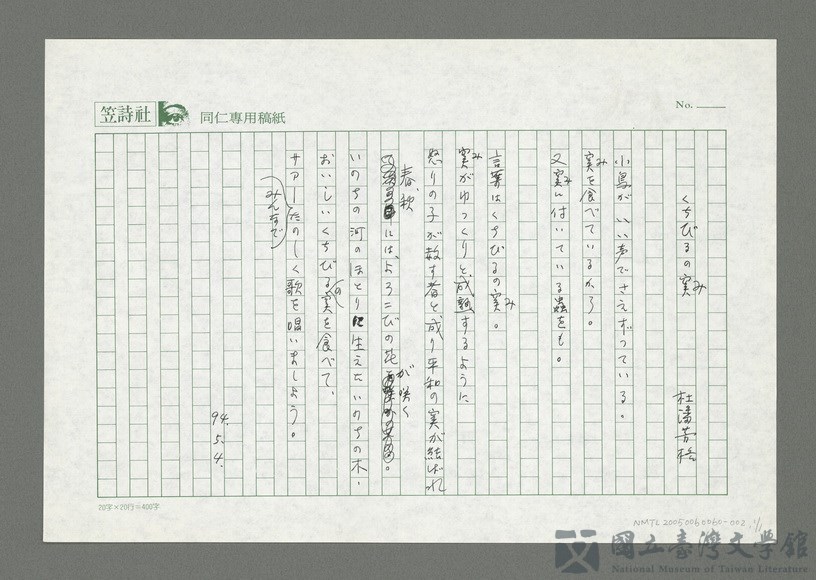 笠詩社 同仁專用稿紙
No.
くちびるの実 杜潘芳格
み
小鳥がいい声でさえずっている。
実を食べているから。
み
又実に付いている蟲をも。
み
言葉はくちびるの実。
み
実がゆっくりと成熟するように
み
怒りの子が赦す者と成り平和の実が結ばれ
春、秋
には、よろこびの花が咲く。
いのちの河のほとりに生えたいのちの木、
おいしいくちびるの実を食べて、
サアーたのしく歌を唱いましょう。
みんなで
94.5.4.
20字×20行=400字
NMTL20050060060-002
國立臺灣文學館
National Museum of Taiwan Literature